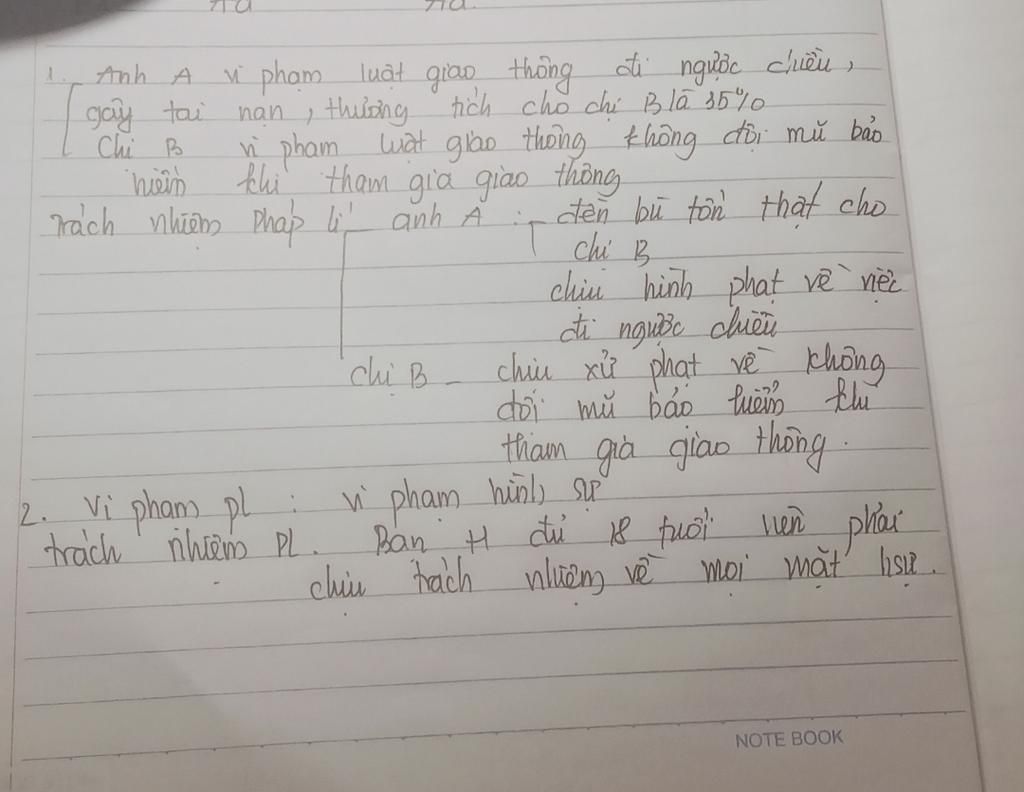 1. Anh A vi phạm luật giao thông đi ngược chiều,
gây tai nạn, thương tích cho chị B là 35%
Chị B vi phạm luật giao thông không đội mũ bảo
hiểm khi tham gia giao thông
Trách nhiệm pháp lí anh A : - đền bù tổn thất cho
chị B
chịu hình phạt về việc
đi ngược chiều
chị B - chịu xử phạt về không
đội mũ bảo hiểm khi
tham gia giao thông.
2. Vi phạm pl : vi phạm hình sự
trách nhiệm PL. Bạn H đủ 18 tuổi nên phải
chịu trách nhiệm về mọi mặt hsự.
NOTE BOOK